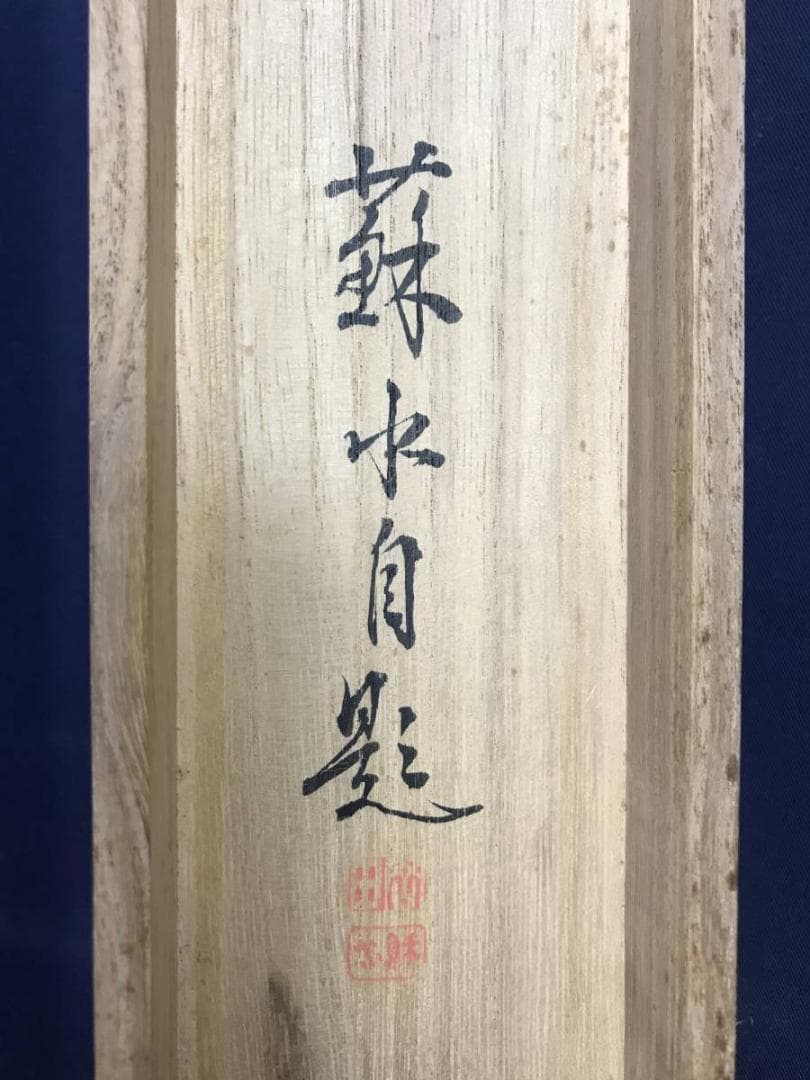 蘇水自題